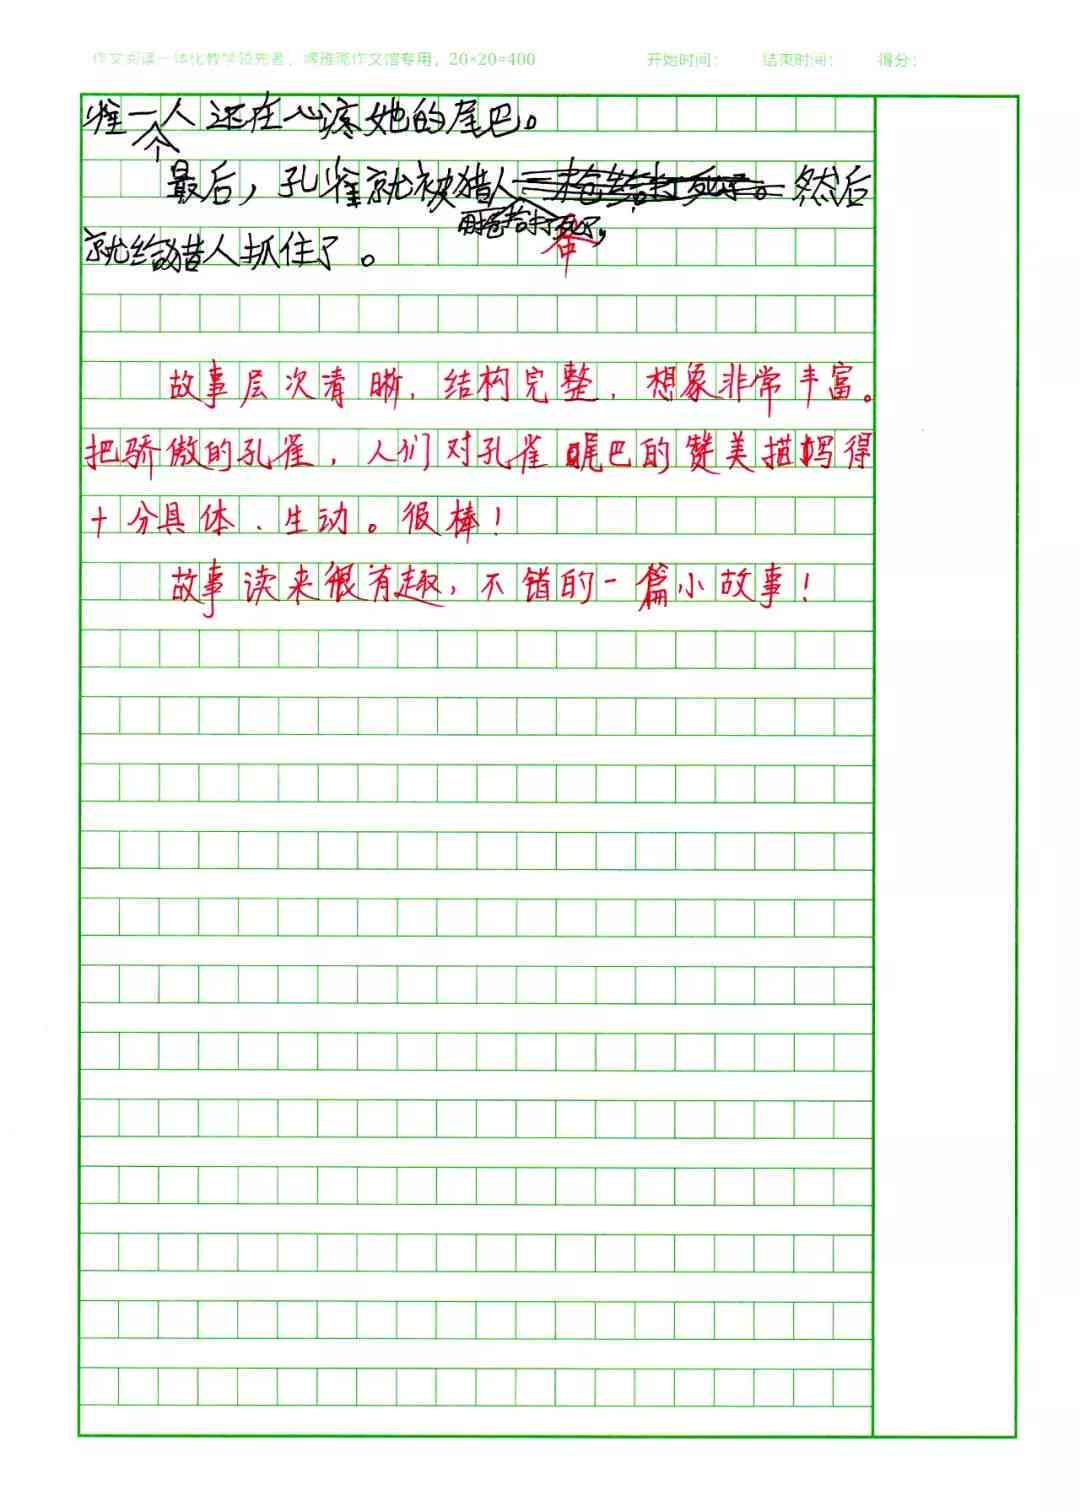 作文阅读一体化教学领先者，雅苑作文馆专用，20×20=400 开始时间： 结束时间： 得分：
惟一个人还在心疼她的尾巴。
最后，孔雀就被猎人然后
用枪给打死了，
就给猎人抓住了。
故事层次清晰，结构完整，想象非常丰富。
把骄傲的孔雀，人们对孔雀尾巴的赞美描写得
十分具体、生动。很棒！
故事读来很有趣，不错的一篇小故事！